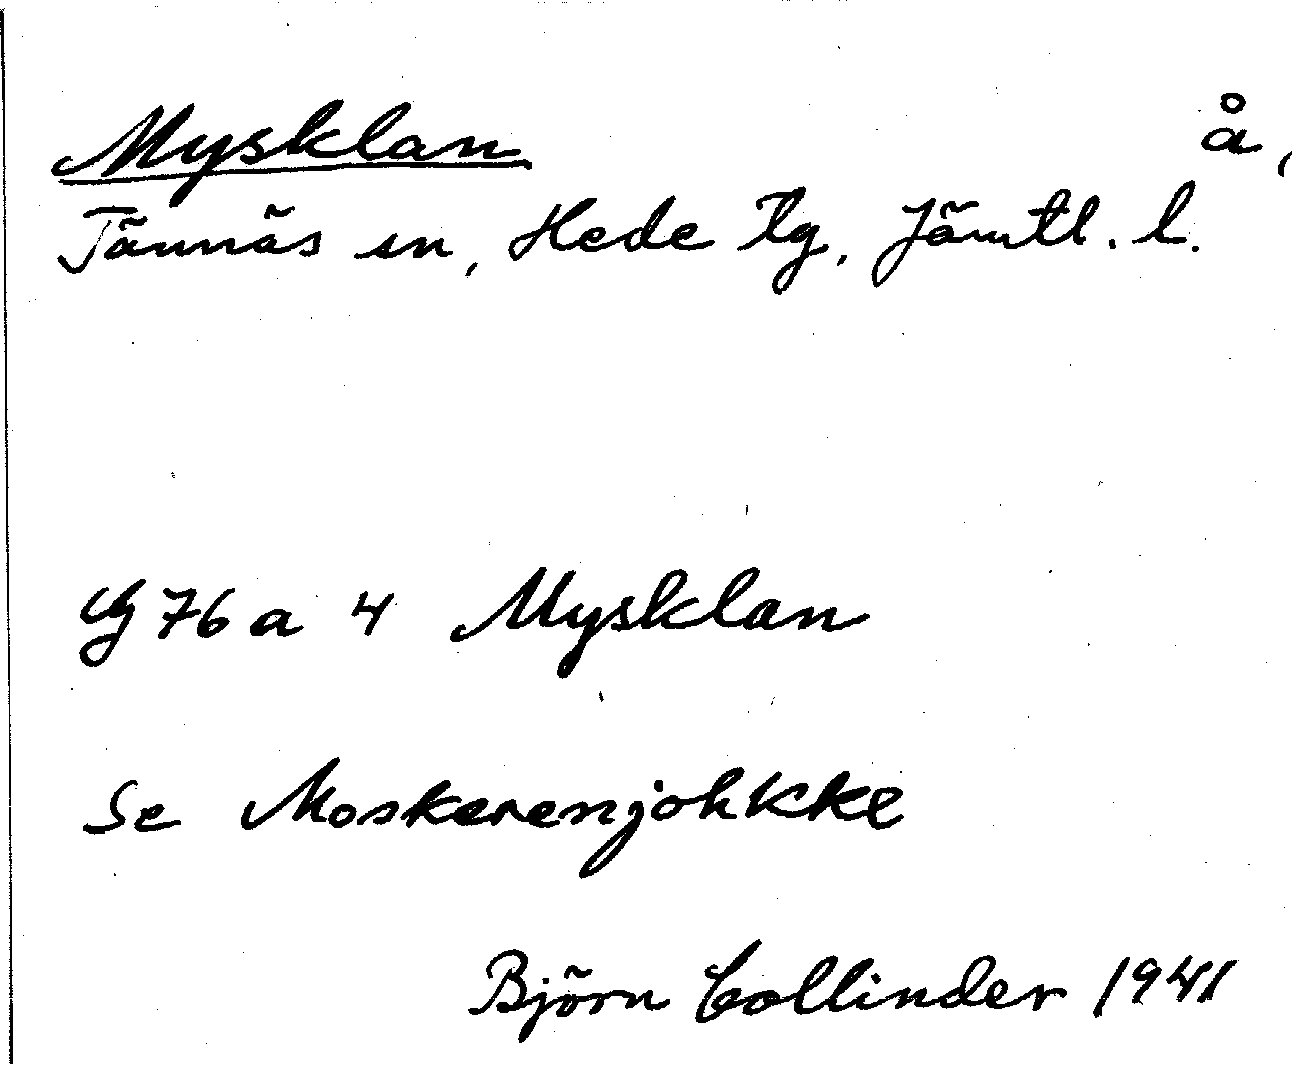 Mysklan å,
Tännäs sn, Hede tg, Jämtl. l.
Cg 76 a 4 Mysklan
Se Moskerenjohkke
Björn Collinder 1941